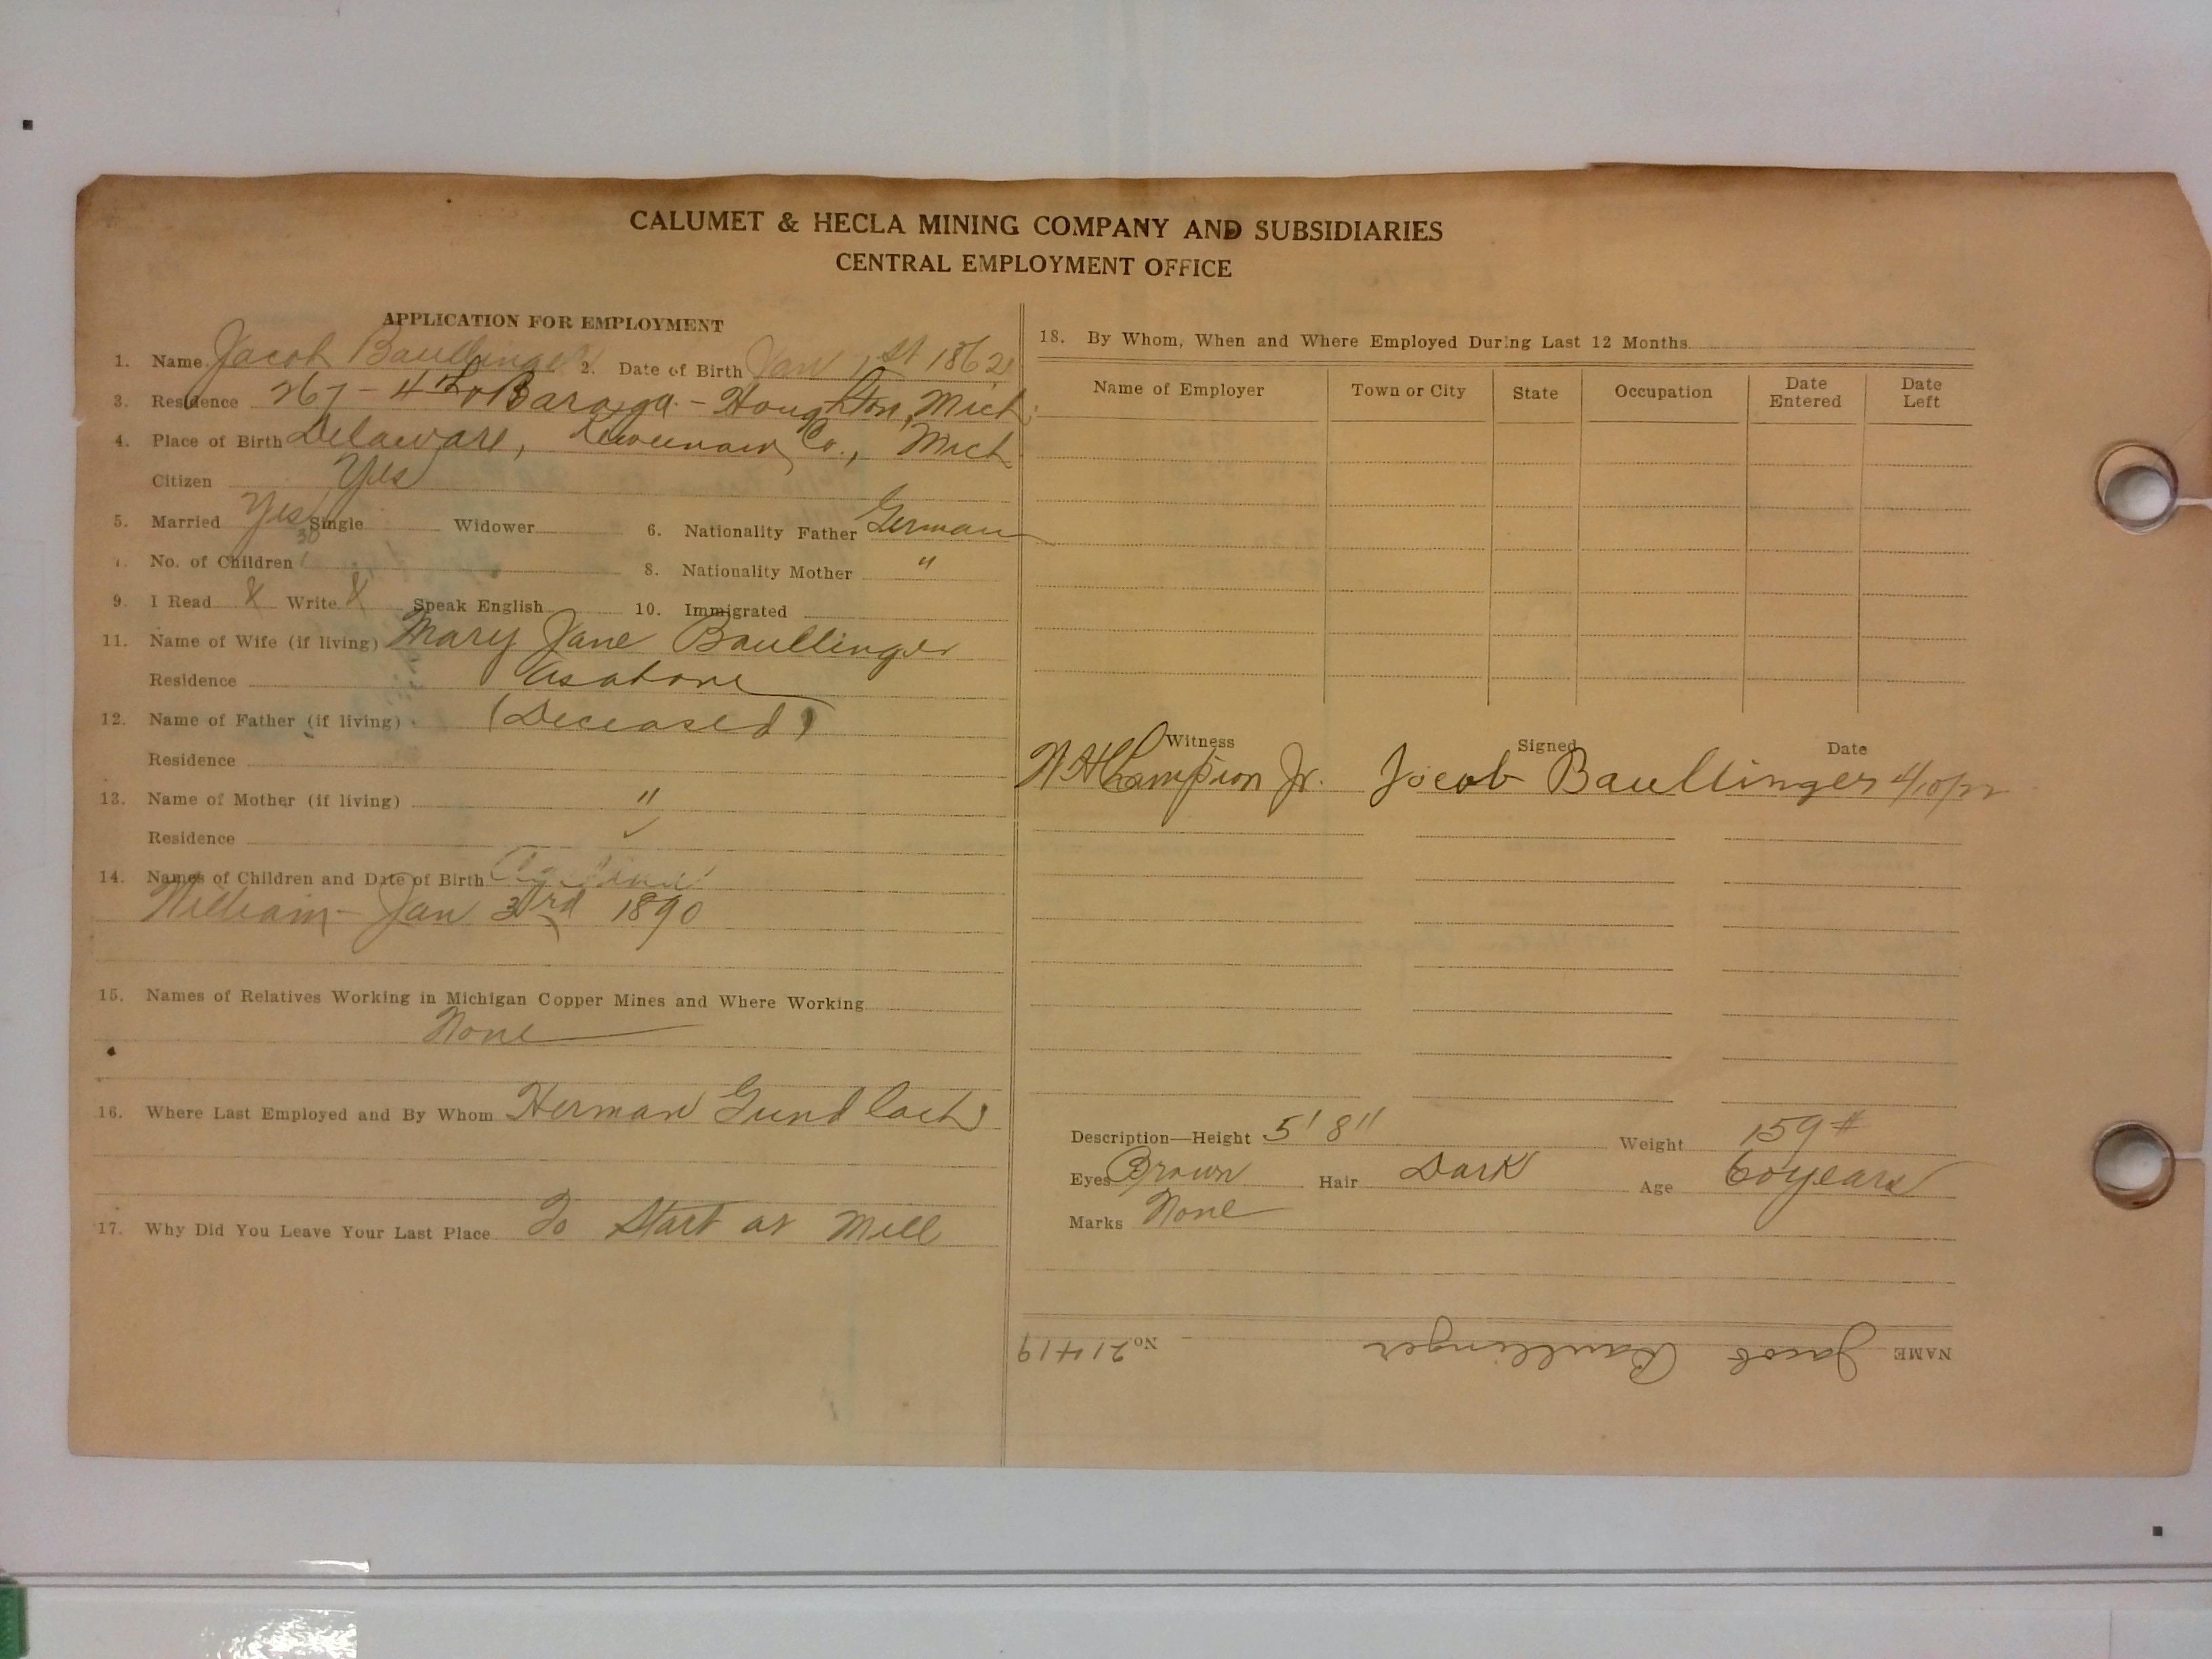 CALUMET & HECLA MINING COMPANY AND SUBSIDIARIES
CENTRAL EMPLOYMENT OFFICE
APPLICATION FOR EMPLOYMENT
1. Name Jacob Baullinger 2. Date of Birth Jan 1st 1862
3. Residence 267 - 4th Baraga - Houghton, Mich
4. Place of Birth Delaware, Keweenaw Co., Mich
Citizen Yes
5. Married Yes Single Widower 6. Nationality Father German
No. of Children 8. Nationality Mother "
9. I Read X Write X Speak English 10. Immigrated
11. Name of Wife (if living) Mary Jane Baullinger
Residence As above
12. Name of Father (if living) (Deceased)
Residence
13. Name of Mother (if living) "
Residence
14. Names of Children and Date of Birth
William - Jan 3rd 1890
15. Names of Relatives Working in Michigan Copper Mines and Where Working
None
16. Where Last Employed and By Whom Herman Gundlach
17. Why Did You Leave Your Last Place To Start at Mill
18. By Whom, When and Where Employed During Last 12 Months
Name of Employer Town or City State Occupation Date Entered Date Left
Witness Signed Date
Champion Jr. Jacob Baullinger 4/10/22
Description—Height 5' 8" Weight 159 #
Eyes Brown Hair Dark Age 60 years
Marks None
NAME Jacob Baullinger No. 21419